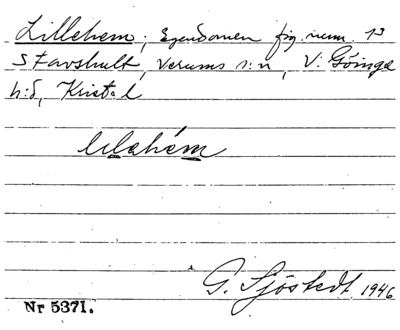 Lillehem; Egendomen fig. num. 13
Stavshult, Verums s:n, V: Göinge
h:d, Krist. l
lılahém
G. Sjöstedt 1946
Nr 5371.